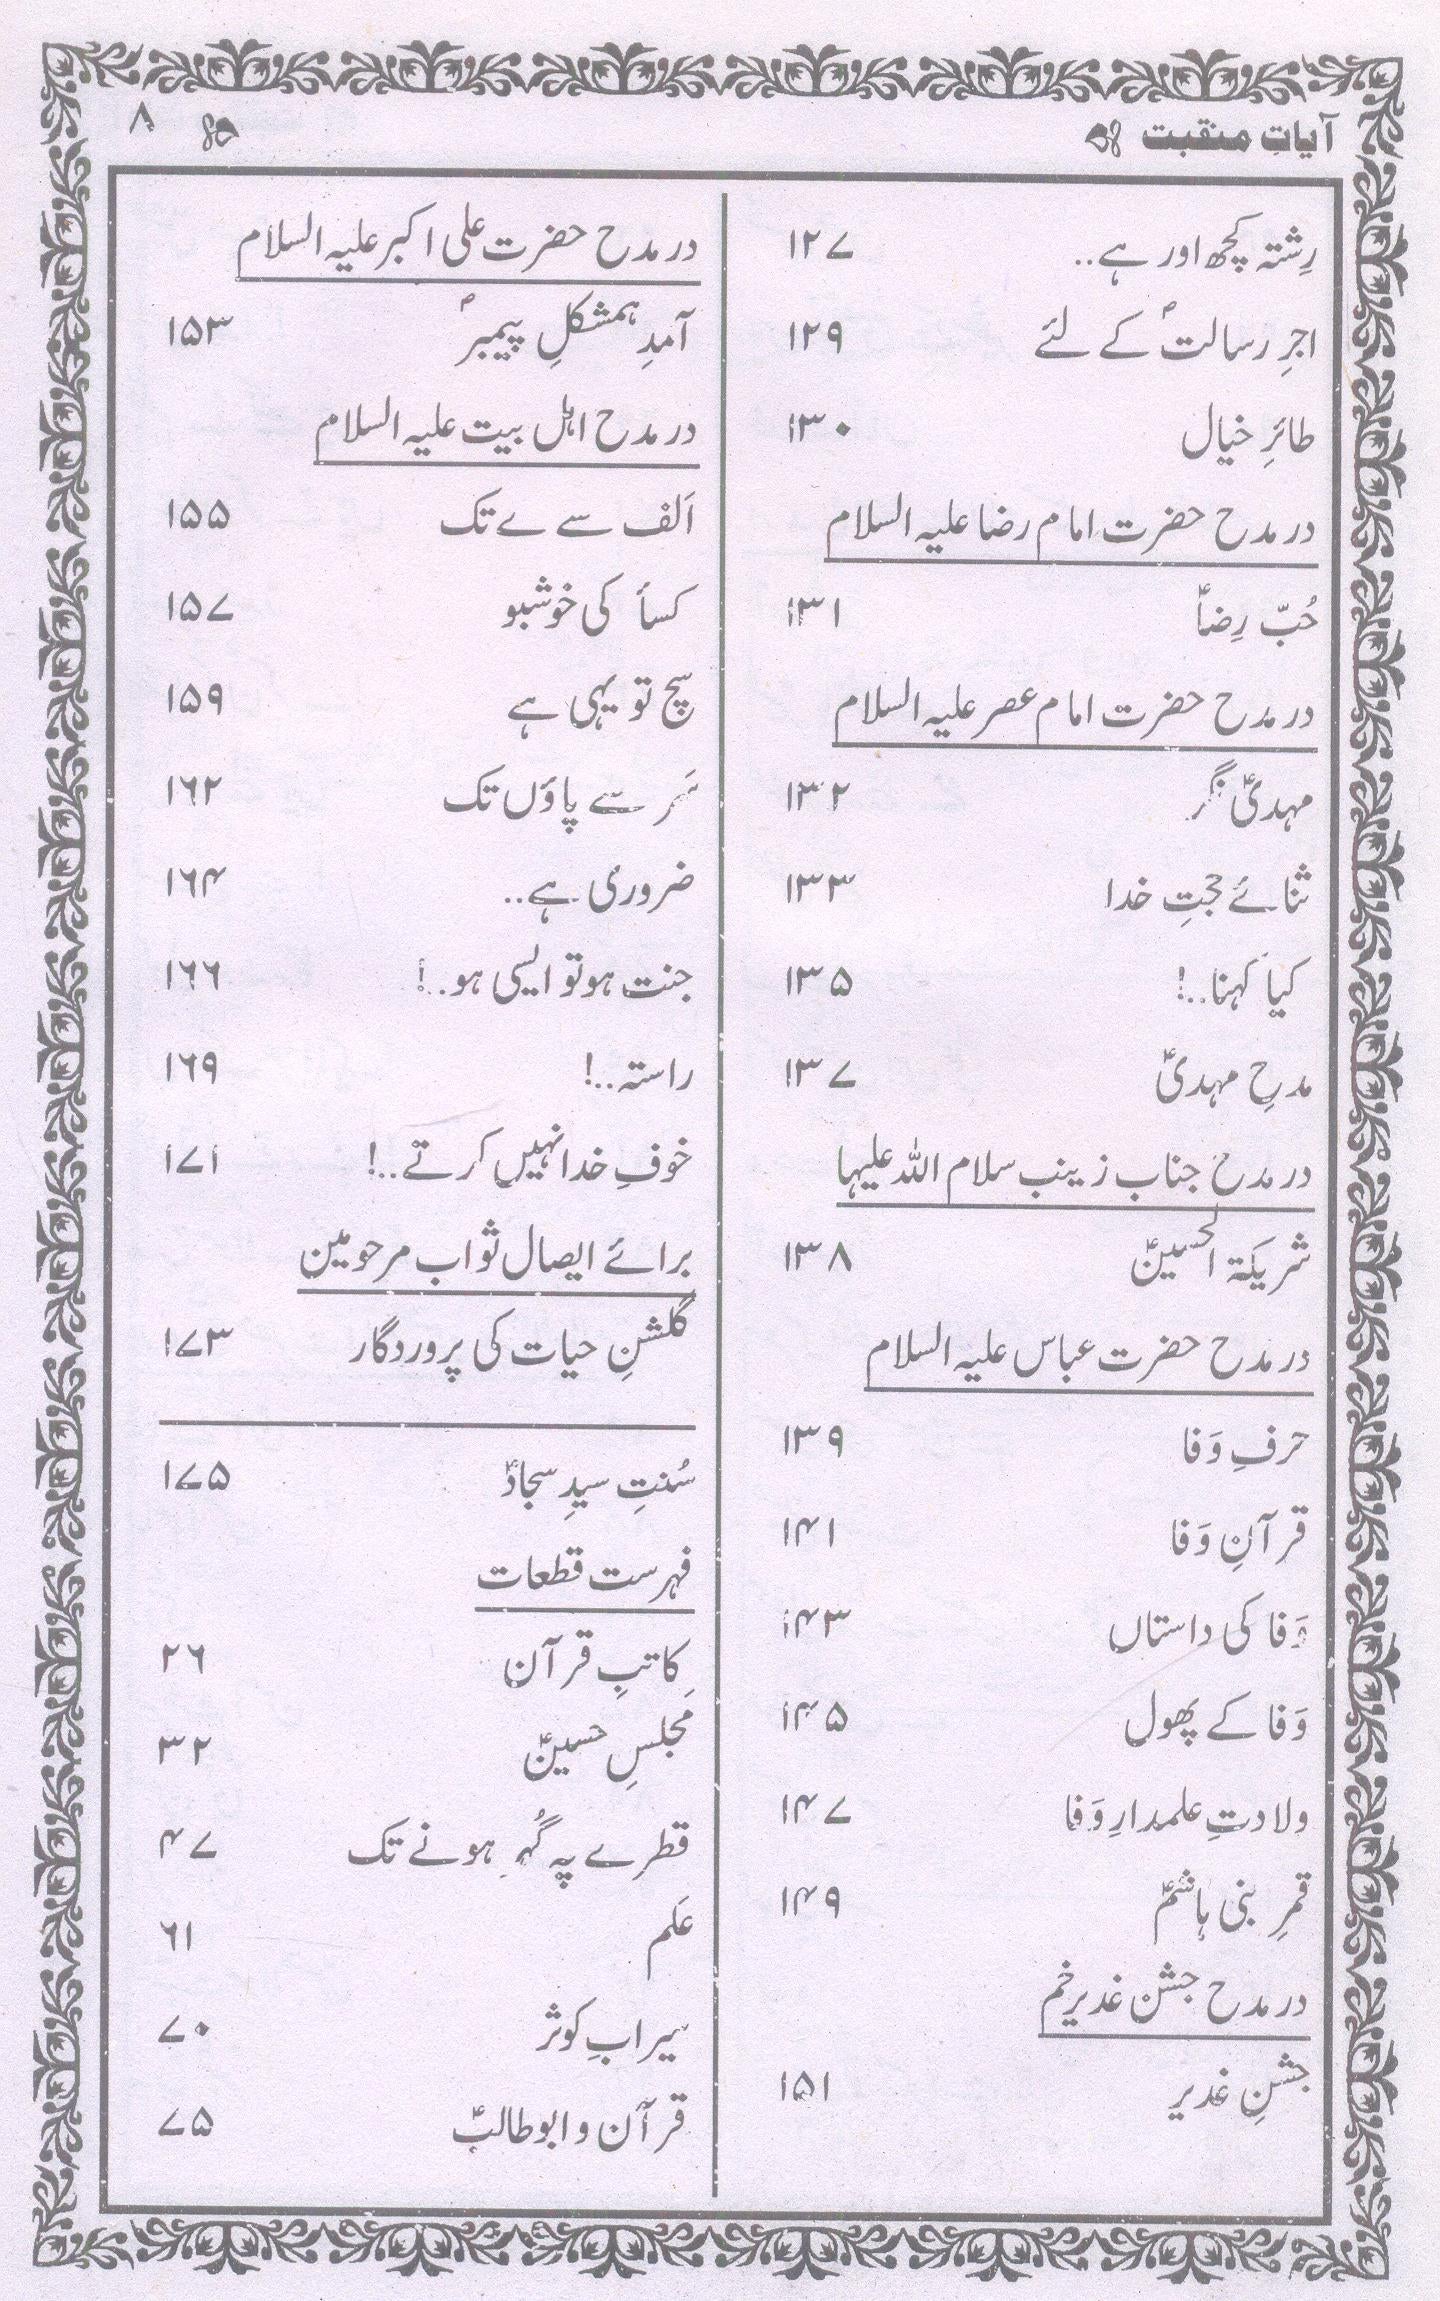 آیاتِ منقبت ۸
رِشتہ کچھ اور ہے.. ۱۲۷
اجرِ رسالتؐ کے لئے ۱۲۹
طائرِ خیال ۱۳۰
در مدح حضرت امام رضا علیہ السلام
حُبِّ رِضاؑ ۱۳۱
در مدح حضرت امام عصر علیہ السلام
مہدیؑ نگر ۱۳۲
ثنائے حجتِ خدا ۱۳۳
کیا کہنا..! ۱۳۵
مدحِ مہدیؑ ۱۳۷
در مدح جناب زینب سلام اللہ علیہا
شریکۃ الحسینؑ ۱۳۸
در مدح حضرت عباس علیہ السلام
حرفِ وَفا ۱۳۹
قرآنِ وَفا ۱۴۱
وَفا کی داستاں ۱۴۳
وَفا کے پھول ۱۴۵
ولادتِ علمدارِ وَفا ۱۴۷
قمرِ بنی ہاشمؑ ۱۴۹
در مدح جشن غدیر خم
جشنِ غدیر ۱۵۱
در مدح حضرت علی اکبر علیہ السلام
آمدِ ہمشکلِ پیمبرؐ ۱۵۳
در مدح اہل بیت علیہ السلام
اَلف سے ے تک ۱۵۵
کسأ کی خوشبو ۱۵۷
سچ تو یہی ہے ۱۵۹
سَر سے پاؤں تک ۱۶۲
ضروری ہے.. ۱۶۴
جنت ہو تو ایسی ہو..! ۱۶۶
راستہ..! ۱۶۹
خوفِ خدا نہیں کرتے..! ۱۷۱
برائے ایصال ثواب مرحومین
گلشنِ حیات کی پروردگار ۱۷۳
سُنتِ سیدِ سجادؑ ۱۷۵
فہرست قطعات
کاتبِ قرآن ۲۶
مجلسِ حسینؑ ۳۲
قطرے پہ گُہر ہونے تک ۴۷
عَلم ۶۱
سیرابِ کوثر ۷۰
قرآن و ابوطالبؑ ۷۵